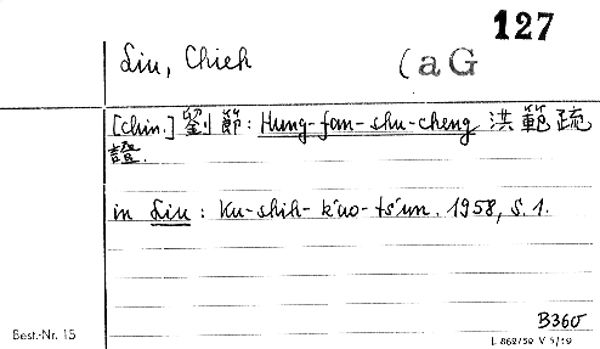 127
Liu, Chieh
(aG
[chin.] 劉節: Hung-fan-shu-cheng 洪範疏
證.
in Liu: Ku-shih-k'ao-ts'un. 1958, S. 1.
B360
Best.-Nr. 15
L 862/59 V 5/19